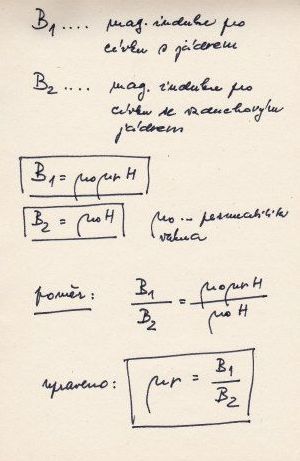 B₁ .... mag. indukce pro
cívku s jádrem
B₂ .... mag. indukce pro
cívku se vzduchovým
jádrem
B₁ = μ₀μr H
B₂ = μ₀ H
μ₀ ... permeabilita
vakua
poměr: B₁/B₂ = μ₀μr H/μ₀ H
upraveno: μr = B₁/B₂